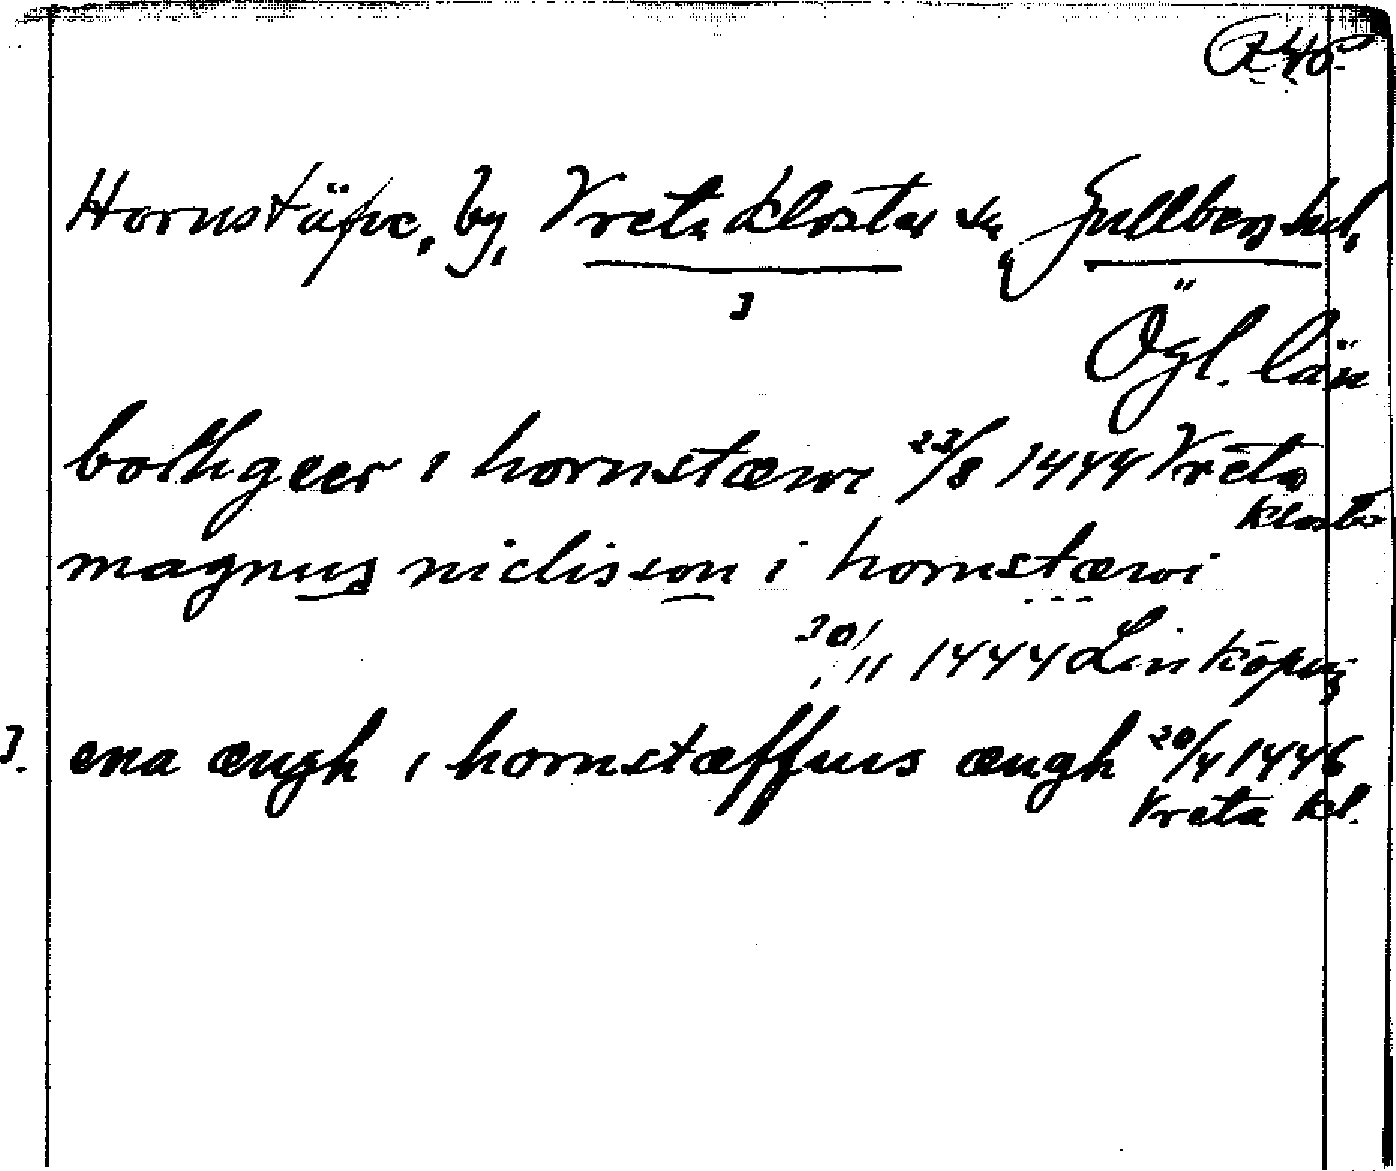 Hornstäfve, by, Vreta Klosters sn, Gullbergs hd,
3
Ögl. län
bothgeer i hornstæwe 23/8 1444 Vreta
kloster
magnus niclisson i hornstæwi
30/11 1444 Linköping
3. ena ængh i hornstæffuis ængh 20/4 1446
Vreta kl.